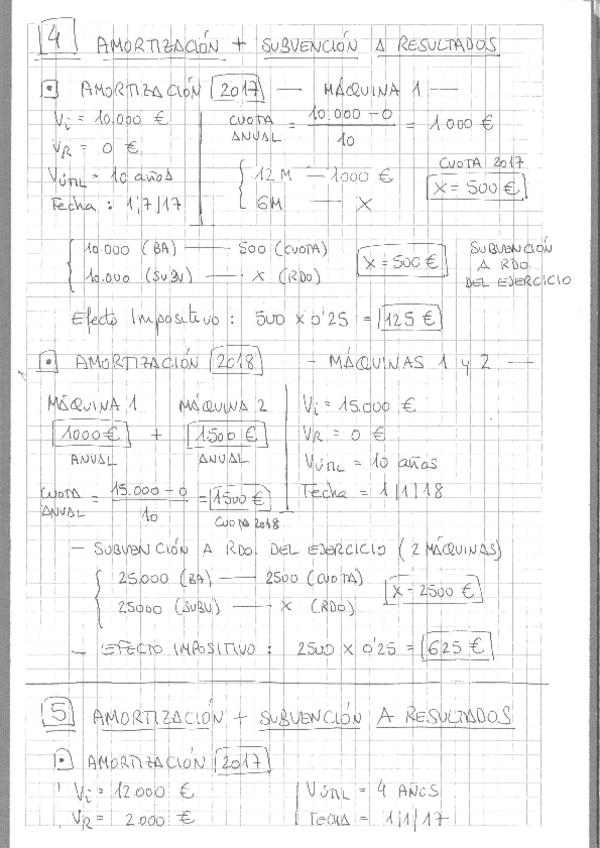 4 AMORTIZACIÓN + SUBVENCIÓN A RESULTADOS
AMORTIZACIÓN 2017 — MÁQUINA 1 —
Vi = 10.000 €
VR = 0 €
VÚTIL = 10 años
Fecha : 1/7/17
CUOTA ANUAL = 10.000 - 0 / 10 = 1.000 €
12 M — 1000 €
6M — X
CUOTA 2017
X = 500 €
10.000 (BA) — 500 (CUOTA)
10.000 (SUBV) — X (RDO)
X = 500 €
SUBVENCIÓN
A RDO.
DEL EJERCICIO
Efecto Impositivo : 500 x 0'25 = 125 €
AMORTIZACIÓN 2018 - MÁQUINAS 1 y 2 —
MÁQUINA 1 MÁQUINA 2
1000 € + 1500 €
ANUAL ANUAL
CUOTA ANUAL = 15.000 - 0 / 10 = 1500 €
CUOTA 2018
Vi = 15.000 €
VR = 0 €
VÚTIL = 10 años
Fecha = 1/1/18
- SUBVENCIÓN A RDO. DEL EJERCICIO (2 MÁQUINAS)
25.000 (BA) — 2500 (CUOTA)
25000 (SUBV) — X (RDO)
X = 2500 €
- EFECTO IMPOSITIVO : 2500 x 0'25 = 625 €
5 AMORTIZACIÓN + SUBVENCIÓN A RESULTADOS
AMORTIZACIÓN 2017
Vi = 12.000 €
VR = 2.000 €
VÚTIL = 4 AÑOS
FECHA = 1/1/17